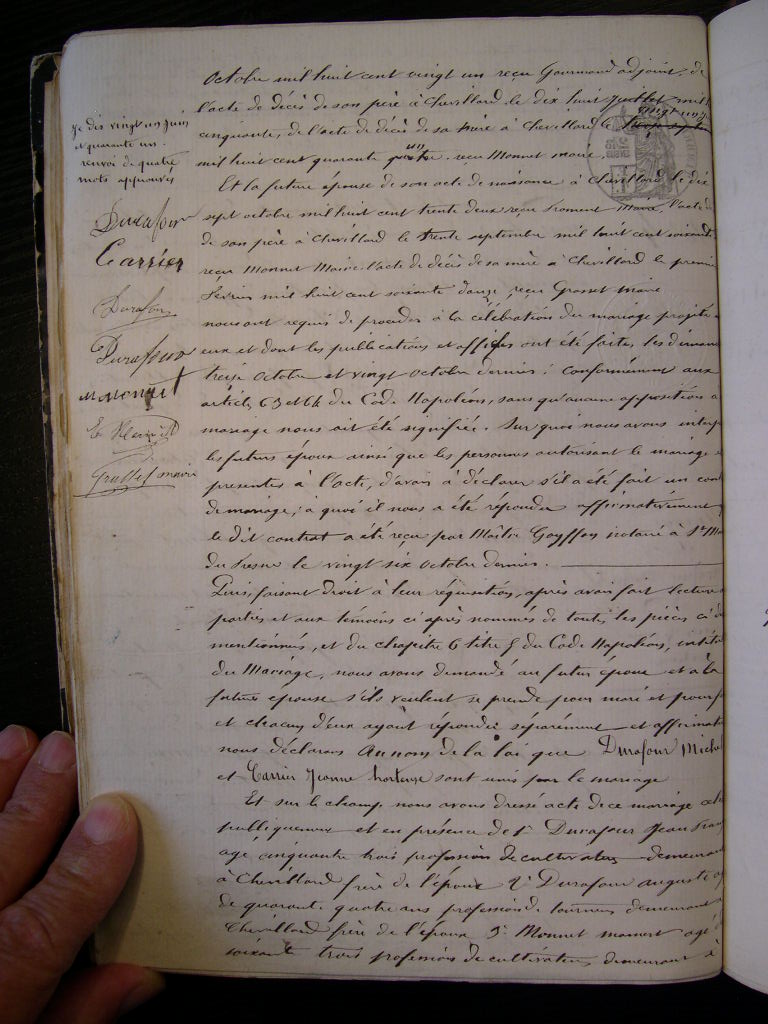 Octobre mil huit cent vingt un reçu Gourmand adjoint. de
l'acte de décès de son père à Chevillard le dix huit Juillet mil
vingt un
cinquante, de l'acte de décès de sa mère à Chevillard le
mil huit cent quarante un reçu Monnet maire.
Et la future épouse de son acte de naissance à Chevillard le dix
sept octobre mil huit cent trente deux reçu Froment Maire, l'acte
de son père à Chevillard le trente septembre mil huit cent soixante
reçu Monnet Maire. l'acte de décès de sa mère à Chevillard le premier
Février mil huit cent soixante douze, reçu Grosset maire
nous ont requis de procéder à la célébration du mariage projeté
eux et dont les publications et affiches ont été faites les dimanc
treize Octobre et vingt octobre dernier; conformément aux
articles 63 et 64 du Code Napoléon, sans qu'aucune opposition a
mariage nous ait été signifiée. Sur quoi nous avons interp
les futurs époux ainsi que les personnes autorisant le mariage
presentes à l'acte, d'avoir à déclarer s'il a été fait un con
de mariage; à quoi il nous a été répondu affirmativement
le dit contrat a été reçu par Maître Goyffon notaire à St M
du Fresne le vingt six octobre dernier.
Puis, faisant droit à leur réquisition, après avoir fait lecture
parties et aux témoins ci après nommés de toutes les pièces ci d
mentionnées, et du chapitre 6 titre 5 du Code Napoléon, intit
du Mariage, nous avons demandé au futur époux et à la
future épouse s'ils veulent se prendre pour mari et pour f
et chacun d'eux ayant répondu séparément et affirmat
nous déclarons au nom de la loi que Durafour Miche
et Carrier Jeanne hortense sont unis par le mariage
Et sur le champ nous avons dressé acte de ce mariage cél
publiquement et en présence de 1° Durafour Jean Fran
agé cinquante trois profession de cultivateur demeurant
à Chevillard frère de l'époux 2° Durafour auguste a
de quarante quatre ans profession de tourneur demeurant à
Chevillard frère de l'époux 3° Monnet mamert agé d
soixante trois profession de cultivateur, demeurant à
Je dis vingt un Juin
et quarante un.
renvoi de quatre
mots approuvés
Durafour
Carrier
Durafour
Durafour
M Monnet
Grosset maire